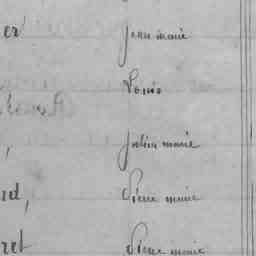 er Jean marie
Louis
, Julien marie
rd, Pierre marie
ret Pierre marie